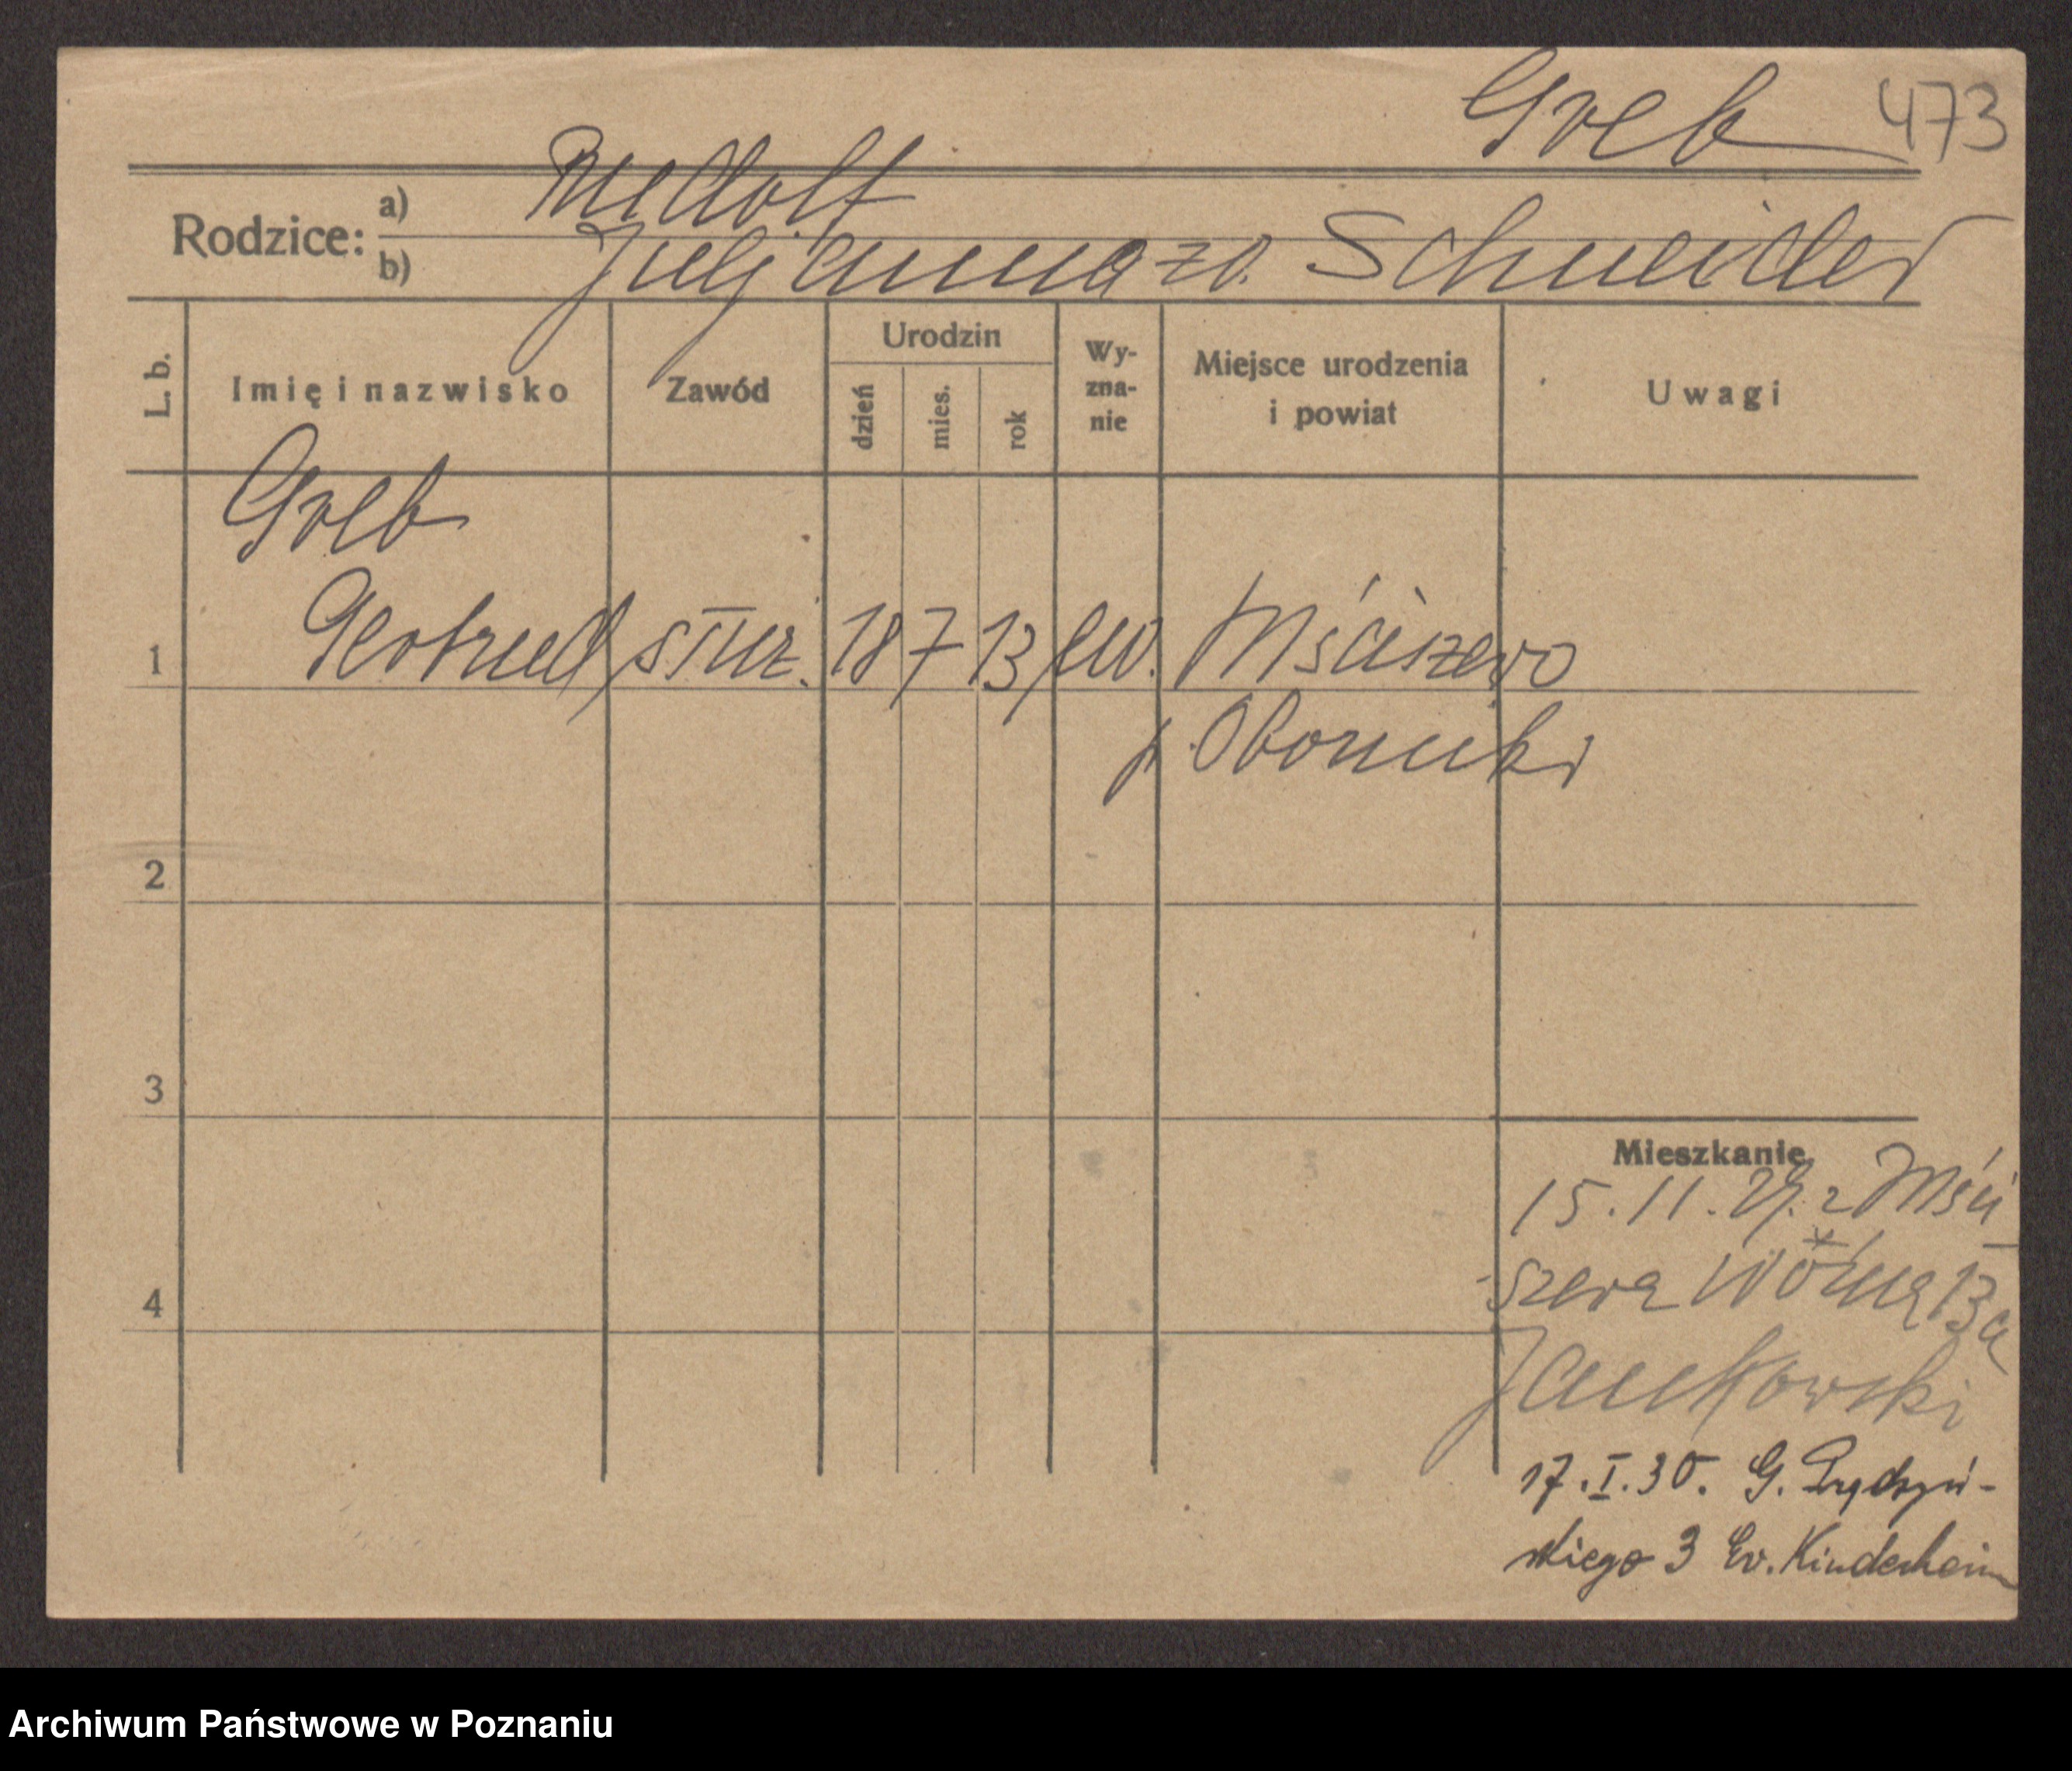 Greb 473
Rodzice: a) Rudolf
b) Juljanna zd. Schneider
L. b. Imię i nazwisko Zawód Urodzin dzień mies. rok Wyznanie Miejsce urodzenia i powiat Uwagi
Greb
1 Gertrud służ. 18 7 13 ew. Mściszewo
p. Oborniki
2
3
Mieszkanie
15.11.29. z Mści
4 -szewa Woźna 13a
Jankowski
17.I.30. G. Prądzyń-
skiego 3 Ev. Kinderheim
Archiwum Państwowe w Poznaniu